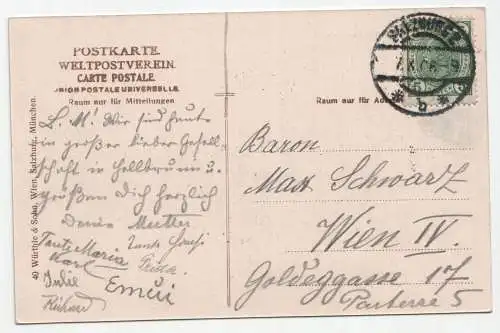 POSTKARTE.
WELTPOSTVEREIN.
CARTE POSTALE.
UNION POSTALE UNIVERSELLE.
Raum nur für Mitteilungen
L. M! Wir sind heute
in großer lieber Gesell-
schaft in Hellbrunn u
grüßen Dich herzlich
Deine Mutter
Tante Maria
Tante
Karl
Frida
Julie
Richard
Würthle & Sohn, Wien, Salzburg, München.
SALZBURG 2
Raum nur für
Baron
Max Schwarz
Wien IV.
Goldeggasse 17
Parterre 5